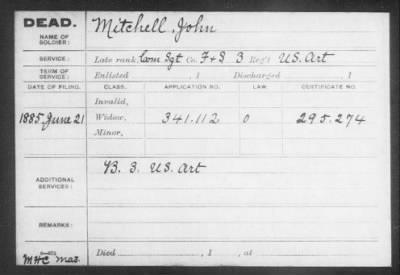 DEAD.
NAME OF SOLDIER: Mitchell, John
SERVICE: Late rank, Com Sgt Co. F&S 3 Reg't U.S. Art
TERM OF SERVICE: Enlisted , 1 Discharged , 1
DATE OF FILING. CLASS. APPLICATION NO. LAW. CERTIFICATE NO.
Invalid,
1885, June 21 Widow, 341.112 0 295.274
Minor,
ADDITIONAL SERVICES: B. 3. U.S. Art
REMARKS:
Died , 1 , at